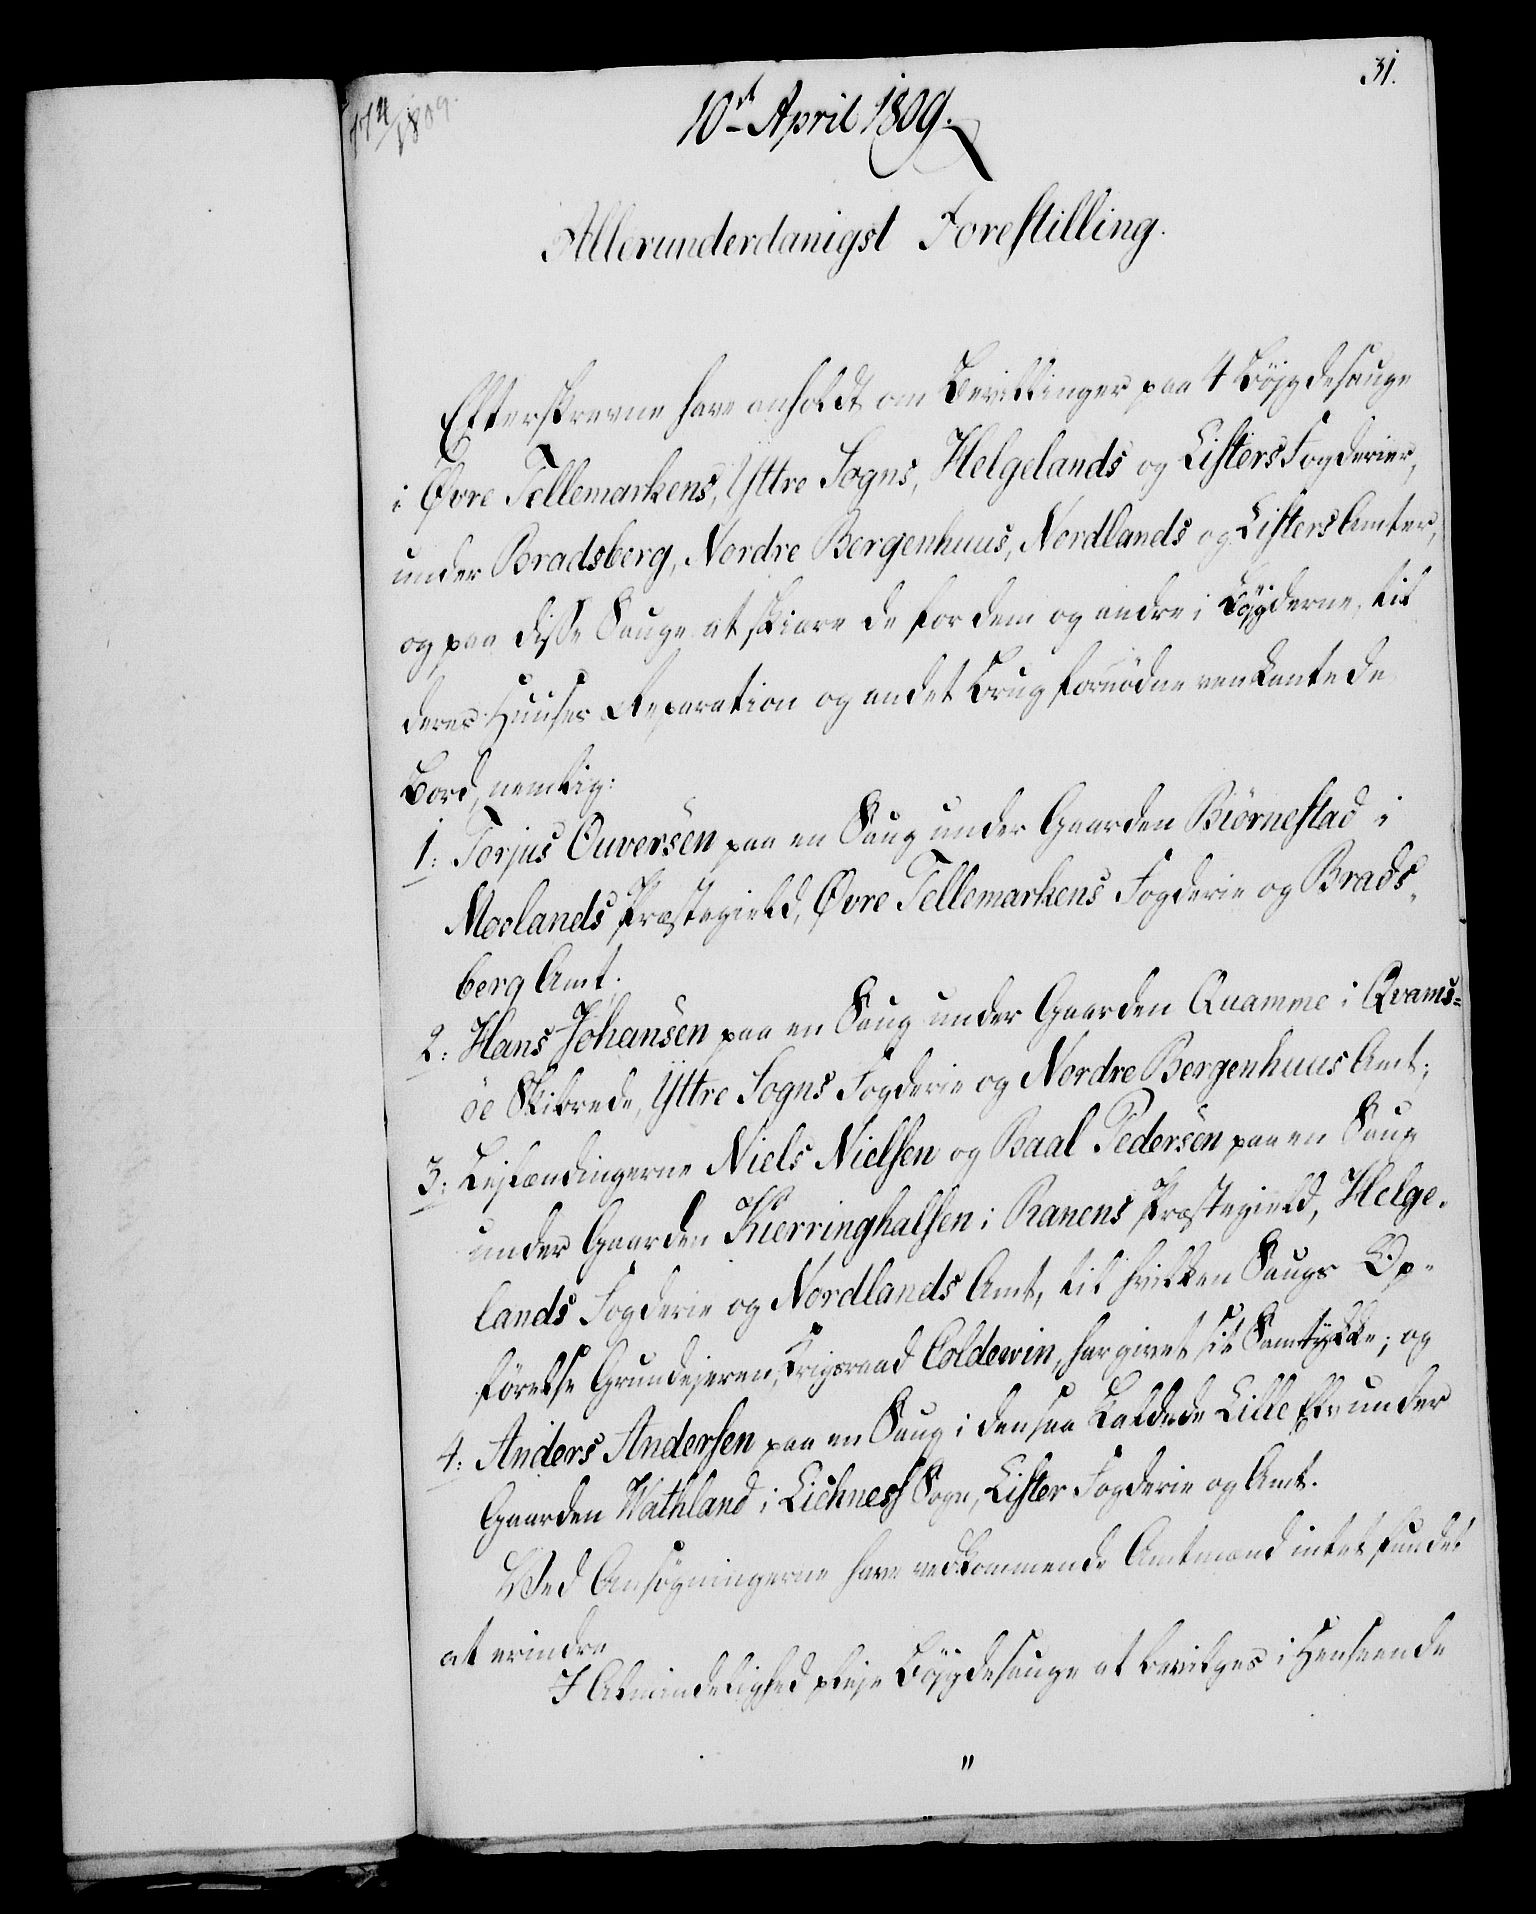 31.
774/1809.
10de April 1809.
Allerunderdanigst Forestilling.
Efterskrevne have anholdt om Bevillinger paa 4 Bøjgdesauge
i Øvre Tellemarkens, Yttre Sogns, Helgelands og Listers Fogderier,
under Bradsberg, Nordre Bergenhuus, Nordlands og Listers Amter,
og paa disse Sauge at skiære de for dem og andre i Bøjgderne, til
deres Huuses Reparation og andet Brug fornødne vankantede
Bord, nemlig:
1: Torjus Ouversen paa en Saug under Gaarden Biörnestad i
Moelands Præstegield, Øvre Tellemarkens Fogderie og Brads-
berg Amt.
2: Hans Johansen paa en Saug under Gaarden Quamme i Qvams-
öe Skibrede, Yttre Sogns Fogderie og Nordre Bergenhuus Amt;
3: Lejlændingerne Niels Nielsen og Baal Pedersen paa en Saug
under Gaarden Kierringhalsen i Ranens Præstegield, Helge-
lands Fogderie og Nordlands Amt, til hvilken Saugs Op-
førelse Grundejeren, Krigsraad Coldewin, har givet sit Samtykke; og
4: Anders Andersen paa en Saug i den saa kaldede Lille Elv under
Gaarden Wathland i Lichness Sogn, Lister Fogderie og Amt.
Ved Ansøgningerne have vedkommende Amtmænd intet fundet
at erindre
I Almindelighed pleje Bøjgdesauge at bevilges i Henseende
"